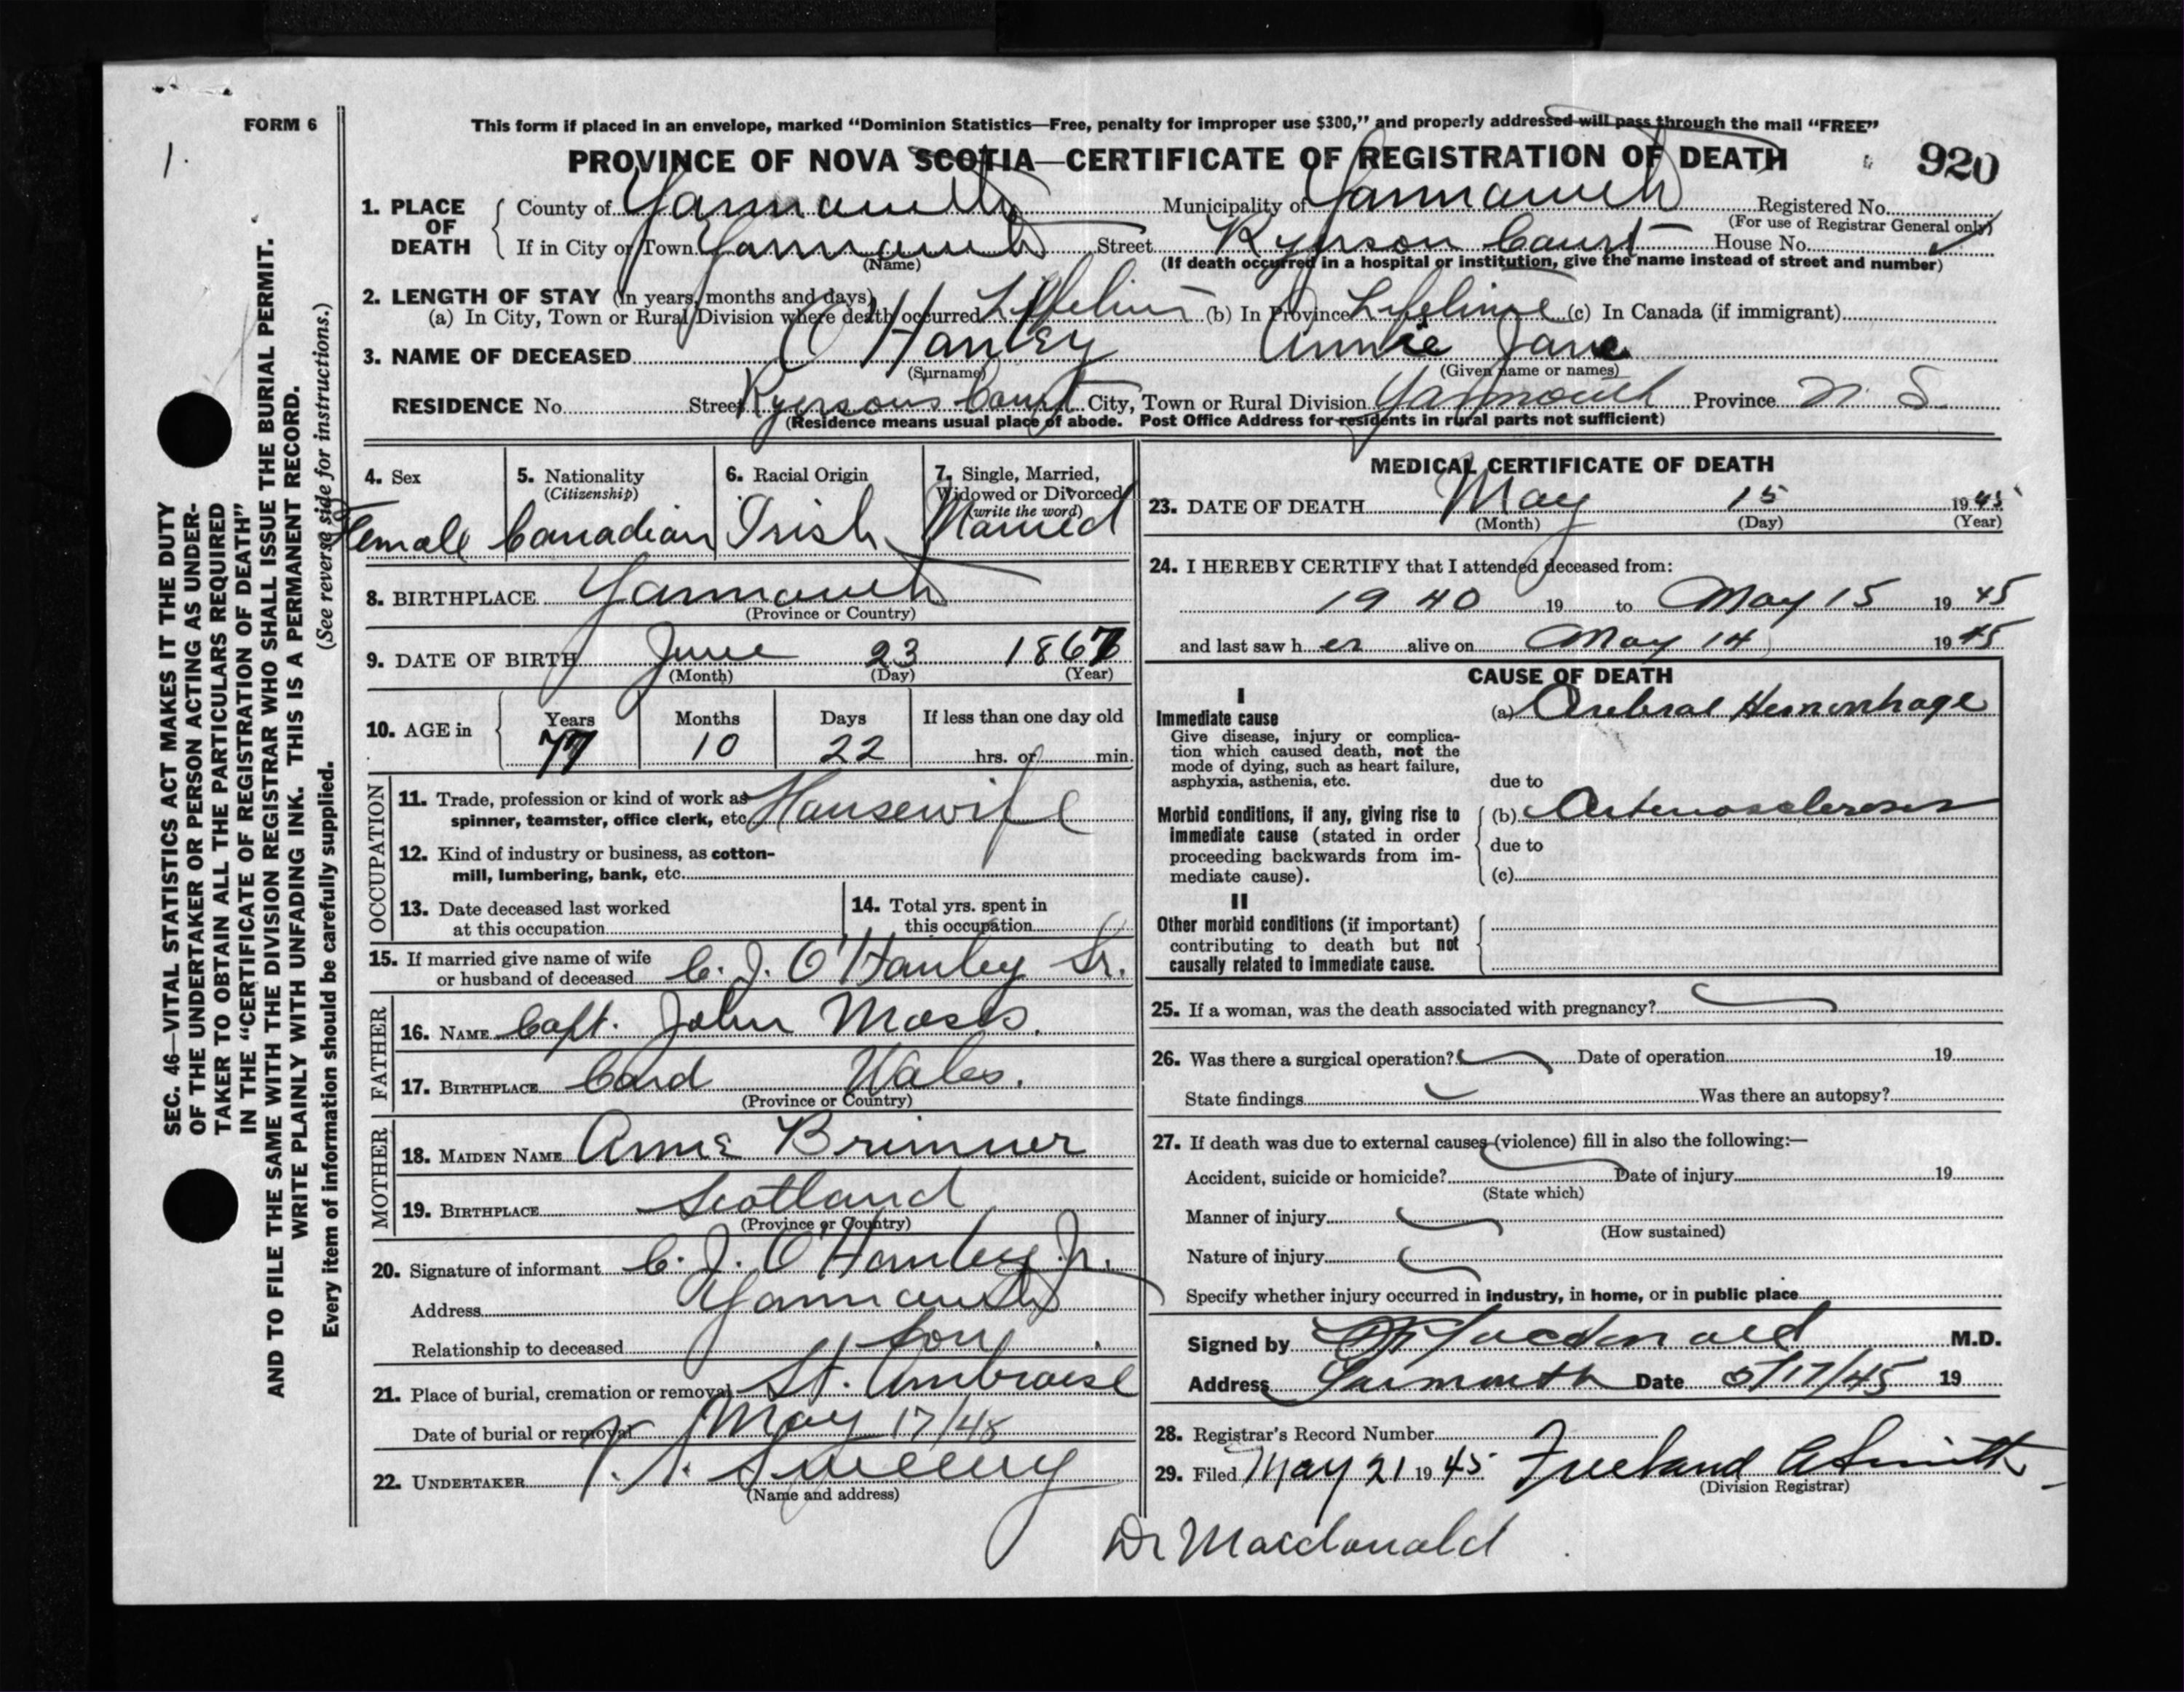 FORM 6
1.
This form if placed in an envelope, marked “Dominion Statistics—Free, penalty for improper use $300,” and properly addressed will pass through the mail “FREE”
PROVINCE OF NOVA SCOTIA—CERTIFICATE OF REGISTRATION OF DEATH 920
1. PLACE OF DEATH County of Yarmouth Municipality of Yarmouth Registered No.
(For use of Registrar General only)
If in City or Town Yarmouth Street Ryerson Court House No.
(Name) (If death occurred in a hospital or institution, give the name instead of street and number)
2. LENGTH OF STAY (in years, months and days)
(a) In City, Town or Rural Division where death occurred Lifetime (b) In Province Lifetime (c) In Canada (if immigrant)
3. NAME OF DECEASED O'Hanley Annie Jane
(Surname) (Given name or names)
RESIDENCE No. Street Ryersons Court City, Town or Rural Division Yarmouth Province N. S.
(Residence means usual place of abode. Post Office Address for residents in rural parts not sufficient)
4. Sex 5. Nationality (Citizenship) 6. Racial Origin 7. Single, Married, Widowed or Divorced (write the word)
Female Canadian Irish Married
8. BIRTHPLACE Yarmouth
(Province or Country)
9. DATE OF BIRTH June 23 1867
(Month) (Day) (Year)
10. AGE in Years Months Days If less than one day old
77 10 22 hrs. or min.
OCCUPATION
11. Trade, profession or kind of work as
spinner, teamster, office clerk, etc. Housewife
12. Kind of industry or business, as cotton-
mill, lumbering, bank, etc.
13. Date deceased last worked
at this occupation
14. Total yrs. spent in
this occupation
15. If married give name of wife
or husband of deceased C. J. O'Hanley Sr.
FATHER
16. NAME Capt. John Moses.
17. BIRTHPLACE Card Wales.
(Province or Country)
MOTHER
18. MAIDEN NAME Anne Brimner
19. BIRTHPLACE Scotland
(Province or Country)
20. Signature of informant C. J. O'Hanley Jr.
Address Yarmouth
Relationship to deceased Son
21. Place of burial, cremation or removal St. Ambroise
Date of burial or removal May 17/45
22. UNDERTAKER V. S. Sweeny
(Name and address)
MEDICAL CERTIFICATE OF DEATH
23. DATE OF DEATH May 15 1945
(Month) (Day) (Year)
24. I HEREBY CERTIFY that I attended deceased from:
1940 19 to May 15 19 45
and last saw h er alive on May 14 19 45
CAUSE OF DEATH
I
Immediate cause (a) Cerebral Hemorrhage
Give disease, injury or complica-
tion which caused death, not the
mode of dying, such as heart failure,
asphyxia, asthenia, etc. due to
Morbid conditions, if any, giving rise to (b) Arteriosclerosis
immediate cause (stated in order
proceeding backwards from im- due to
mediate cause). (c)
II
Other morbid conditions (if important)
contributing to death but not
causally related to immediate cause.
25. If a woman, was the death associated with pregnancy?
26. Was there a surgical operation? Date of operation 19
State findings Was there an autopsy?
27. If death was due to external causes (violence) fill in also the following:—
Accident, suicide or homicide? Date of injury 19
(State which)
Manner of injury
(How sustained)
Nature of injury
Specify whether injury occurred in industry, in home, or in public place
Signed by Macdonald M.D.
Address Yarmouth Date 5/17/45 19
28. Registrar's Record Number
29. Filed May 21 1945 Freeland A Smith
(Division Registrar)
Dr Macdonald
SEC. 46—VITAL STATISTICS ACT MAKES IT THE DUTY
OF THE UNDERTAKER OR PERSON ACTING AS UNDER-
TAKER TO OBTAIN ALL THE PARTICULARS REQUIRED
IN THE “CERTIFICATE OF REGISTRATION OF DEATH”
AND TO FILE THE SAME WITH THE DIVISION REGISTRAR WHO SHALL ISSUE THE BURIAL PERMIT.
WRITE PLAINLY WITH UNFADING INK. THIS IS A PERMANENT RECORD.
Every item of information should be carefully supplied. (See reverse side for instructions.)